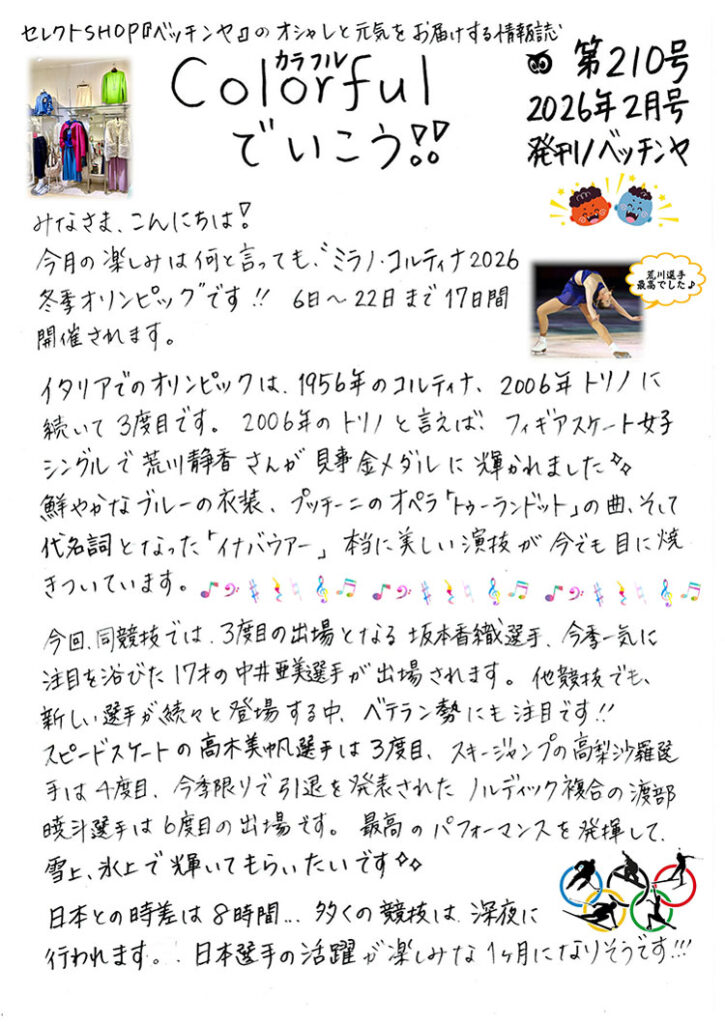 セレクトSHOP『ベッチンヤ』のオシャレと元気をお届けする情報誌
カラフル
Colorful
でいこう!!
第210号
2026年2月号
発刊/ベッチンヤ
みなさま、こんにちは!
今月の楽しみは何と言っても、"ミラノ・コルティナ2026
冬季オリンピック"です!! 6日～22日まで17日間
開催されます。
荒川選手
最高でした♪
イタリアでのオリンピックは、1956年のコルティナ、2006年トリノに
続いて3度目です。2006年のトリノと言えば、フィギアスケート女子
シングルで荒川静香さんが見事金メダルに輝かれました✧
鮮やかなブルーの衣装、プッチーニのオペラ「トゥーランドット」の曲、そして
代名詞となった「イナバウアー」本当に美しい演技が今でも目に焼
きついています。
今回、同競技では、3度目の出場となる坂本香織選手、今季一気に
注目を浴びた17才の中井亜美選手が出場されます。他競技でも、
新しい選手が続々と登場する中、ベテラン勢にも注目です!!
スピードスケートの高木美帆選手は3度目、スキージャンプの高梨沙羅選
手は4度目、今季限りで引退を発表されたノルディック複合の渡部
暁斗選手は6度目の出場です。最高のパフォーマンスを発揮して、
雪上、氷上で輝いてもらいたいです✧
日本との時差は8時間... 多くの競技は、深夜に
行われます。. 日本選手の活躍が楽しみな1ヶ月になりそうです!!!